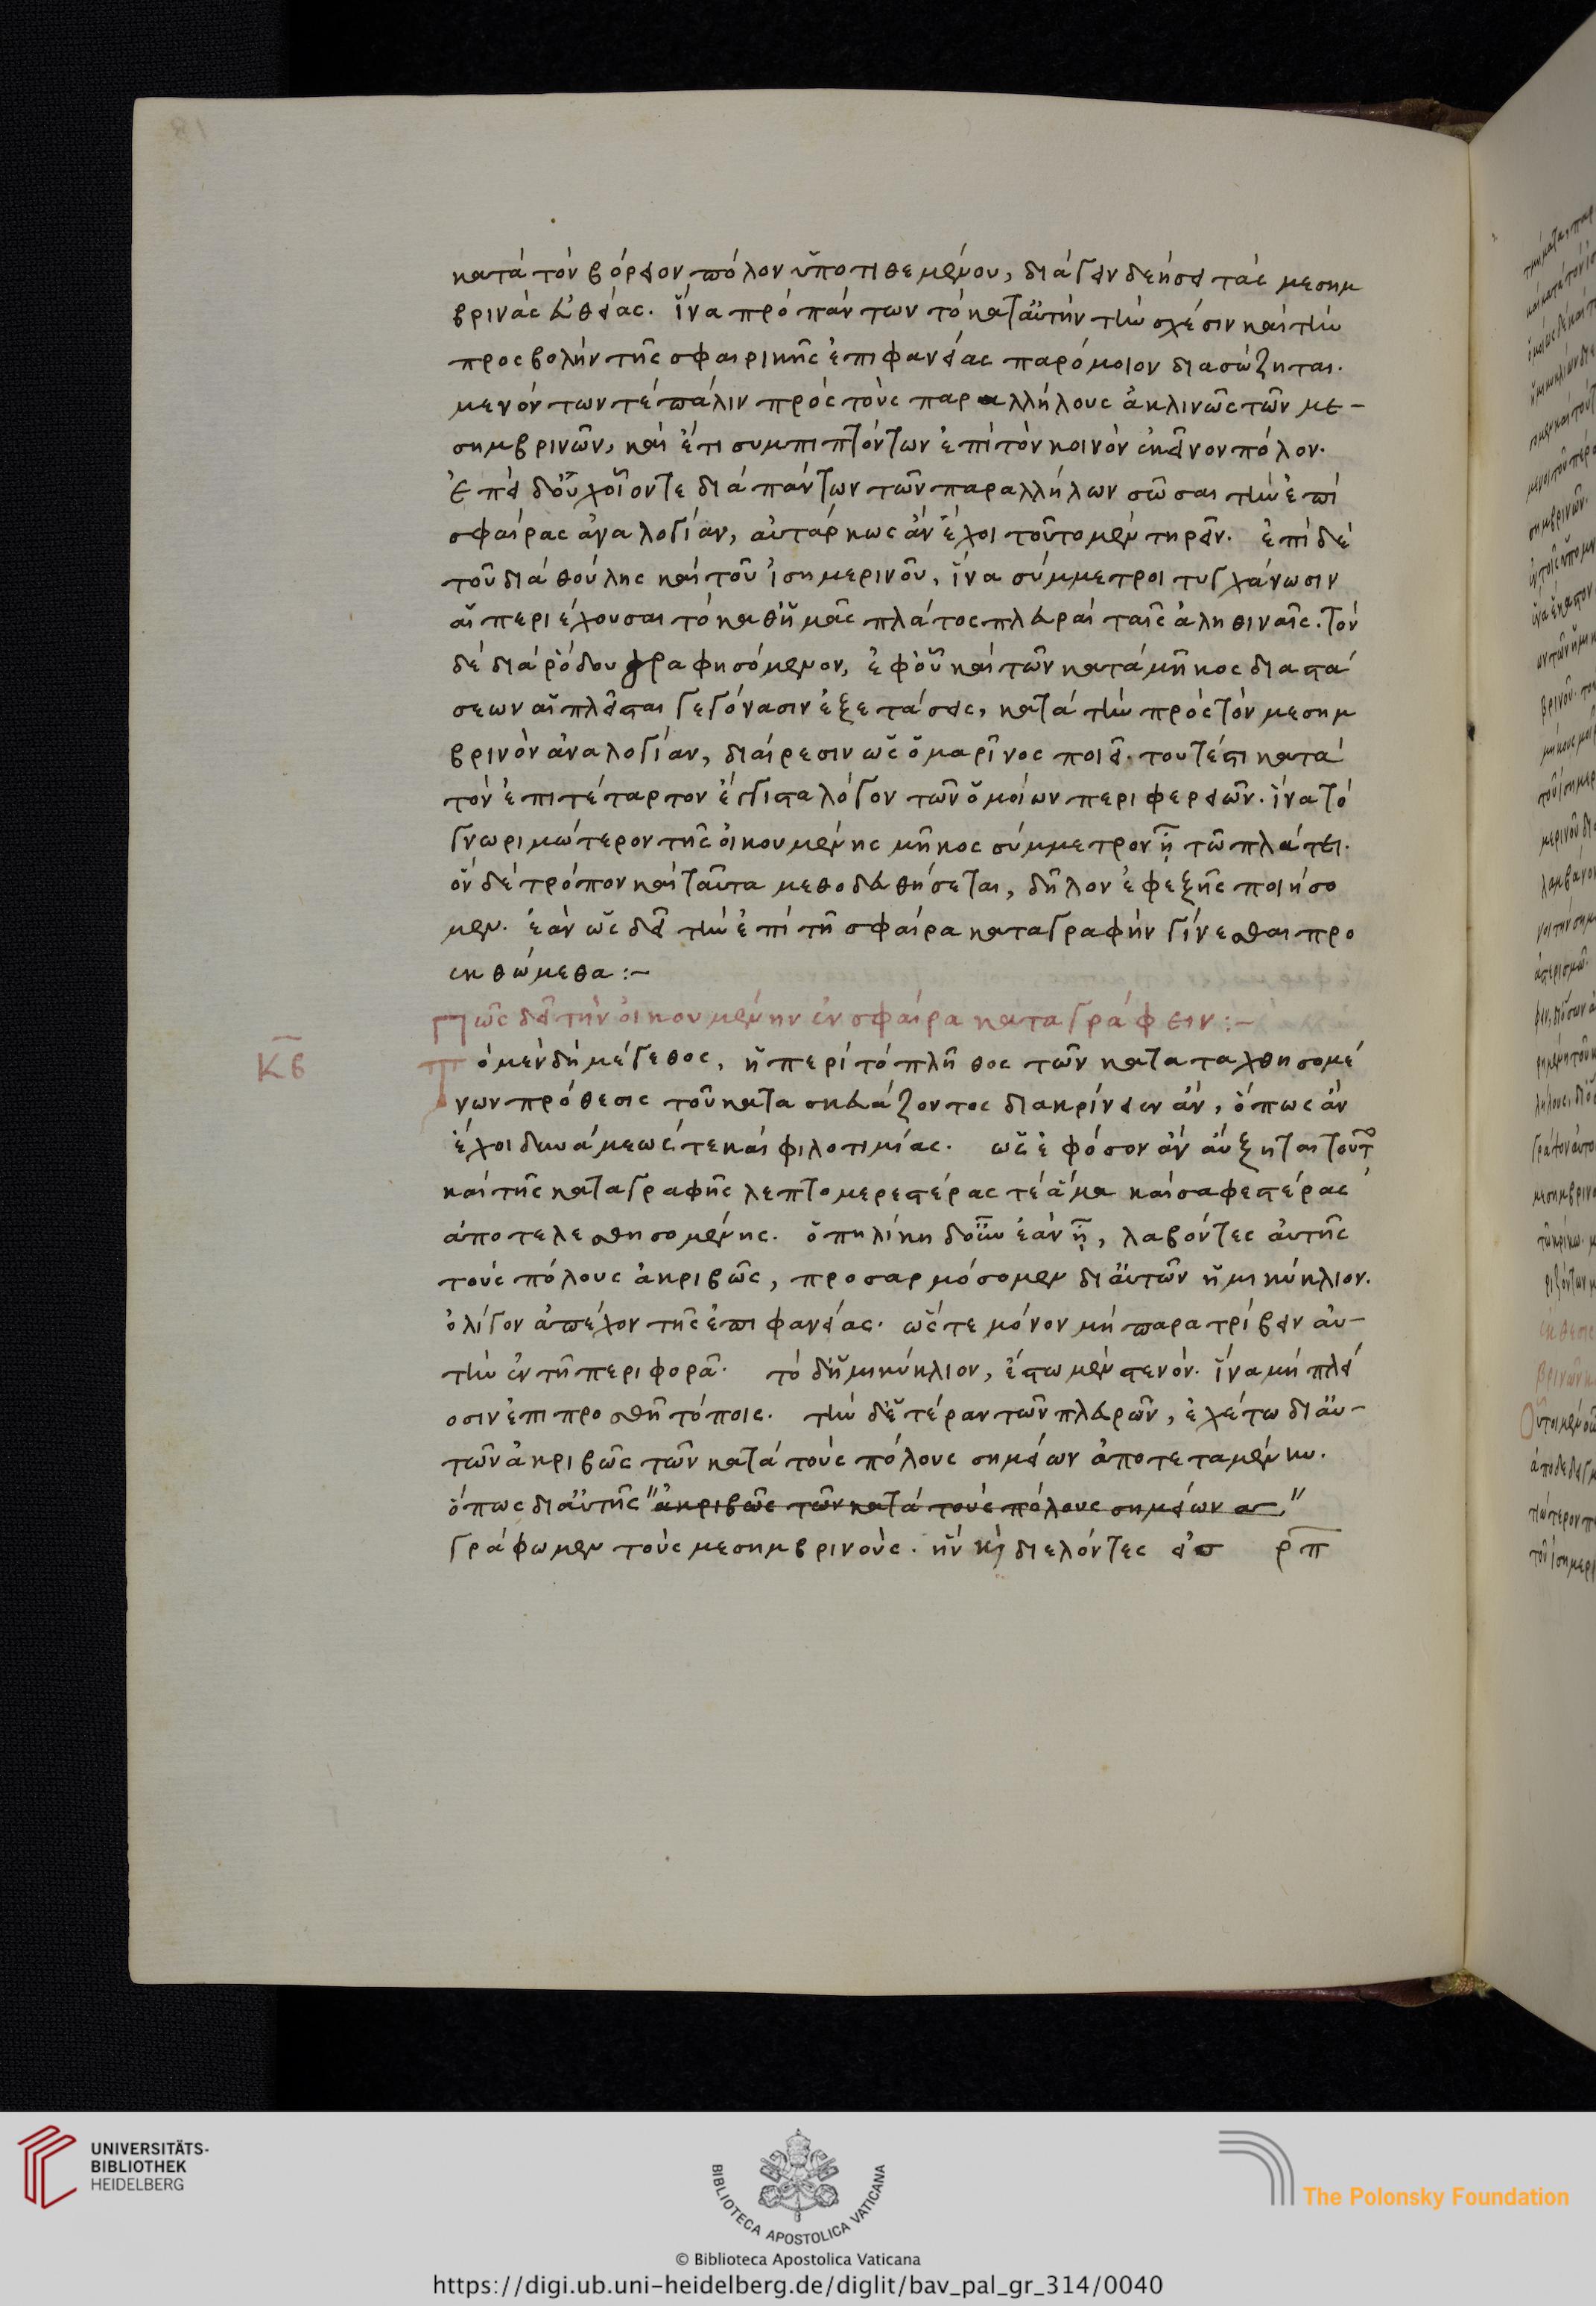 κατὰ τὸν βόρειον πόλον ὑποτιθεμένου, διάγειν δεήσει τὰς μεσημ
βρινὰς εὐθείας. ἵνα πρὸ πάντων τὸ κατ' αὐτὴν τὴν σχέσιν καὶ τὴν
προσβολὴν τῆς σφαιρικῆς ἐπιφανείας παρόμοιον διασώζηται.
μενόντων τὲ πάλιν πρὸς τοὺς παραλλήλους ἀκλινῶς τῶν με-
σημβρινῶν, καὶ ἔτι συμπιπτόντων ἐπὶ τὸν κοινὸν ἐκεῖνον πόλον.
ἐπεὶ δ' οὐχ οἷόντε διὰ πάντων τῶν παραλλήλων σῶσαι τὴν ἐπὶ
σφαίρας ἀναλογίαν, αὐτάρκως ἂν ἔχοι τοῦτο μὲν τηρεῖν. ἐπὶ δὲ
τοῦ διὰ θούλης καὶ τοῦ ἰσημερινοῦ, ἵνα σύμμετροι τυγχάνωσιν
αἱ περιέχουσαι τὸ καθ' ἡμᾶς πλάτος πλευραὶ ταῖς ἀληθιναῖς. τὸν
δὲ διὰ ῥόδου γραφησόμενον, ἐφ' οὗ καὶ τῶν κατὰ μῆκος διαστά
σεων αἱ πλεῖσται γεγόνασιν ἐξετάσεις, κατὰ τὴν πρὸς τὸν μεσημ
βρινὸν ἀναλογίαν, διαίρεσιν ὡς ὁ μαρῖνος ποιεῖ. τουτέστι κατὰ
τὸν ἐπιτέταρτον ἔγγιστα λόγον τῶν ὁμοίων περιφερειῶν. ἵνα τὸ
γνωριμώτερον τῆς οἰκουμένης μῆκος σύμμετρον ᾖ τῶ πλάτει.
ὃν δὲ τρόπον καὶ ταῦτα μεθοδευθήσεται, δῆλον ἐφεξῆς ποιήσο
μεν. ἐὰν ὡς δεῖ τὴν ἐπὶ τῆ σφαίρα καταγραφὴν γίνεσθαι προ
εκθώμεθα :-
Πῶς δεῖ τὴν οἰκουμένην ἐν σφαίρα καταγράφειν :-
κβ
Τὸ μὲν δὴ μέγεθος, ἡ περὶ τὸ πλῆθος τῶν καταταχθησομέ
νων πρόθεσις τοῦ κατασκευάζοντος διακρίνειεν ἂν, ὅπως ἂν
ἔχοι δυνάμεως τε καὶ φιλοτιμίας. ὡς ἐφ' ὅσον ἂν αὔξηται τοῦτο
καὶ τῆς καταγραφῆς λεπτομερεστέρας τὲ ἅμα καὶ σαφεστέρας
ἀποτελεσθησομένης. ὁπηλίκη δ' οὖν ἐὰν ᾖ, λαβόντες αὐτῆς
τοὺς πόλους ἀκριβῶς, προσαρμόσομεν δι' αὐτῶν ἡμικύκλιον.
ὀλίγον ἀπέχον τῆς ἐπιφανείας. ὥστε μόνον μὴ παρατρίβειν αὐ-
τὴν ἐν τῆ περιφορᾶ. τὸ δ' ἡμικύκλιον, ἔστω μὲν στενὸν. ἵνα μὴ πλεί
οσιν ἐπιπροσθῆ τόποις. τὴν δ' ἑτέραν τῶν πλευρῶν, ἐχέτω δι' αὐ-
τῶν ἀκριβῶς τῶν κατὰ τοὺς πόλους σημείων ἀποτεταμένην.
ὅπως δι' αὐτῆς "ἀκριβῶς τῶν κατὰ τοὺς πόλους σημείων απ"
γράφωμεν τοὺς μεσημβρινούς. ἣν καὶ διελόντες εἰσ ρπ
UNIVERSITÄTS-
BIBLIOTHEK
HEIDELBERG
BIBLIOTECA APOSTOLICA VATICANA
The Polonsky Foundation
© Biblioteca Apostolica Vaticana
https://digi.ub.uni-heidelberg.de/diglit/bav_pal_gr_314/0040